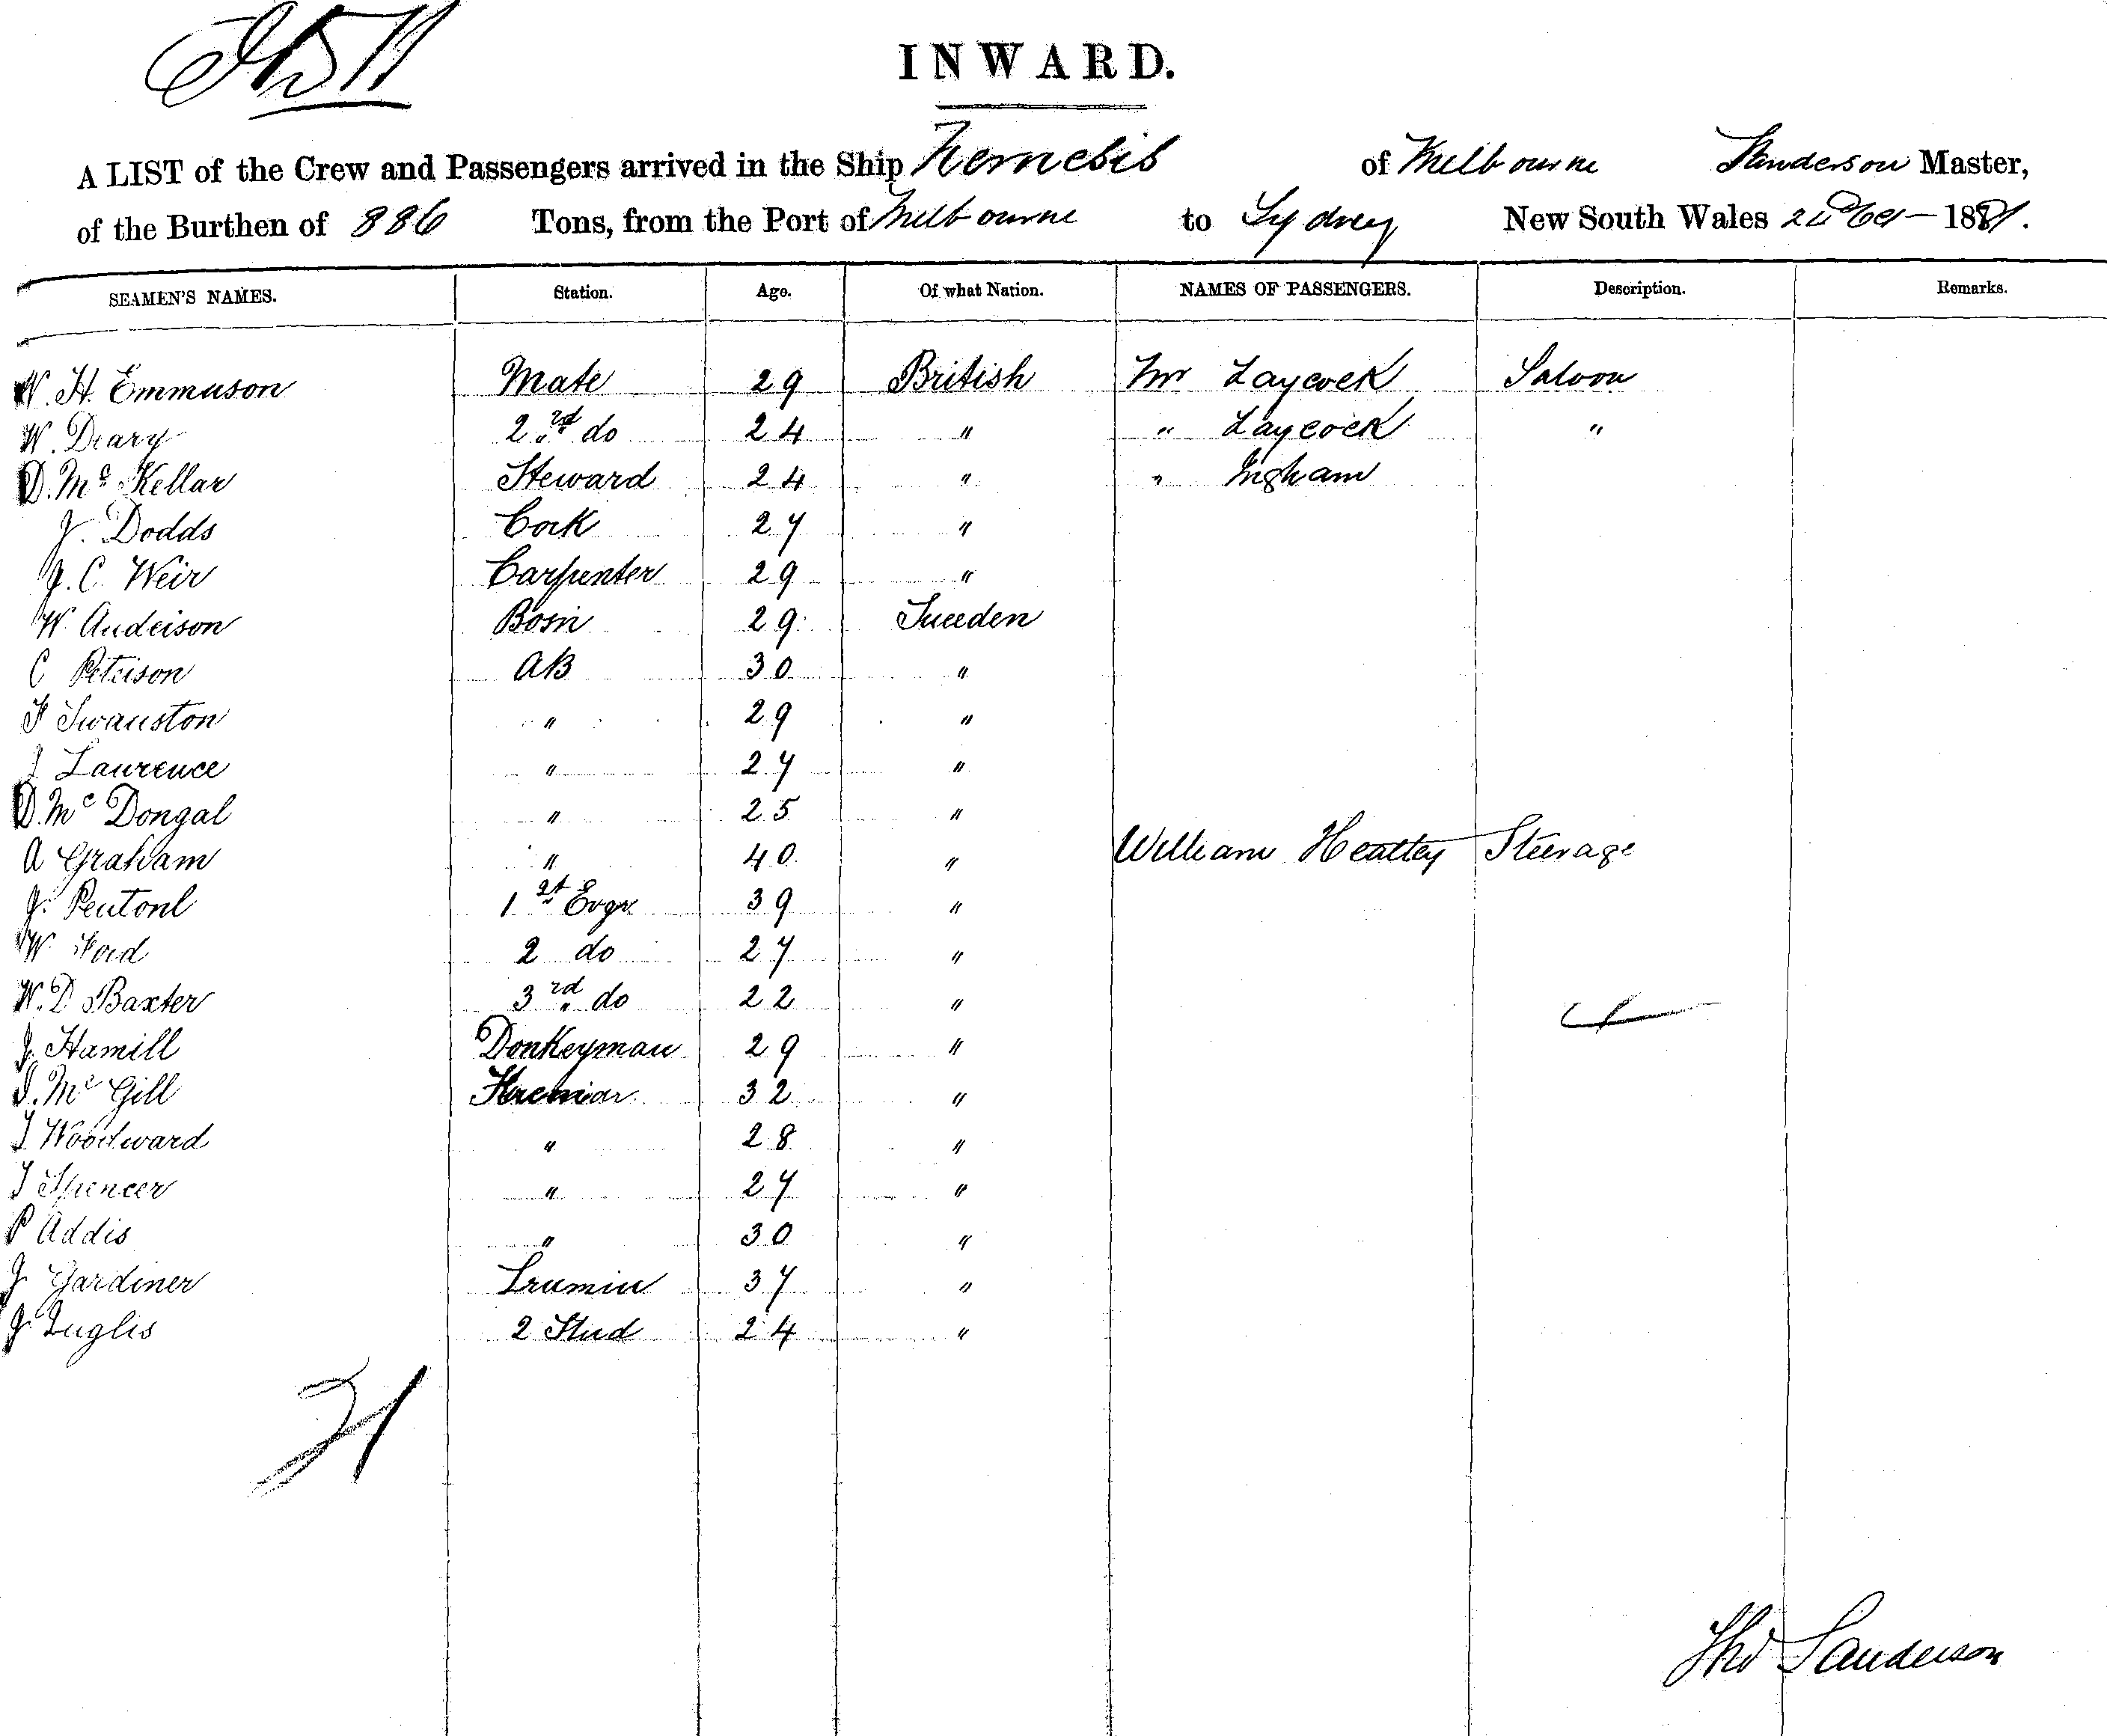 INWARD.
A LIST of the Crew and Passengers arrived in the Ship Nemesis of Melbourne Sanderson Master,
of the Burthen of 886 Tons, from the Port of Melbourne to Sydney New South Wales 1881.
SEAMEN'S NAMES. Station. Age. Of what Nation. NAMES OF PASSENGERS. Description. Remarks.
W. H. Emmuson Mate 29 British Mr Laycock Saloon
W. Deary 2nd do 24 " " Laycock "
D. Mc Kellar Steward 24 " " Ingham
J. Dodds Cook 27 "
J. C. Weir Carpenter 29 "
W. Anderson Bosn 29 Sweeden
C Peterson AB 30 "
F Swanston " 29 "
J Laurence " 27 "
D. Mc Dongal " 25 "
A Graham " 40 " William Heattey Steerage
J. 1st Engr 39 "
W. Ford 2 do 27 "
W. D Baxter 3rd do 22 "
J. Hamill Donkeyman 29 "
J. Mc Gill Fireman 32 "
J Woodward " 28 "
J Spencer " 27 "
P Addis " 30 "
J. Gardiner 37 "
J. Inglis 2 Stud 24 "
21
Thos Sanderson